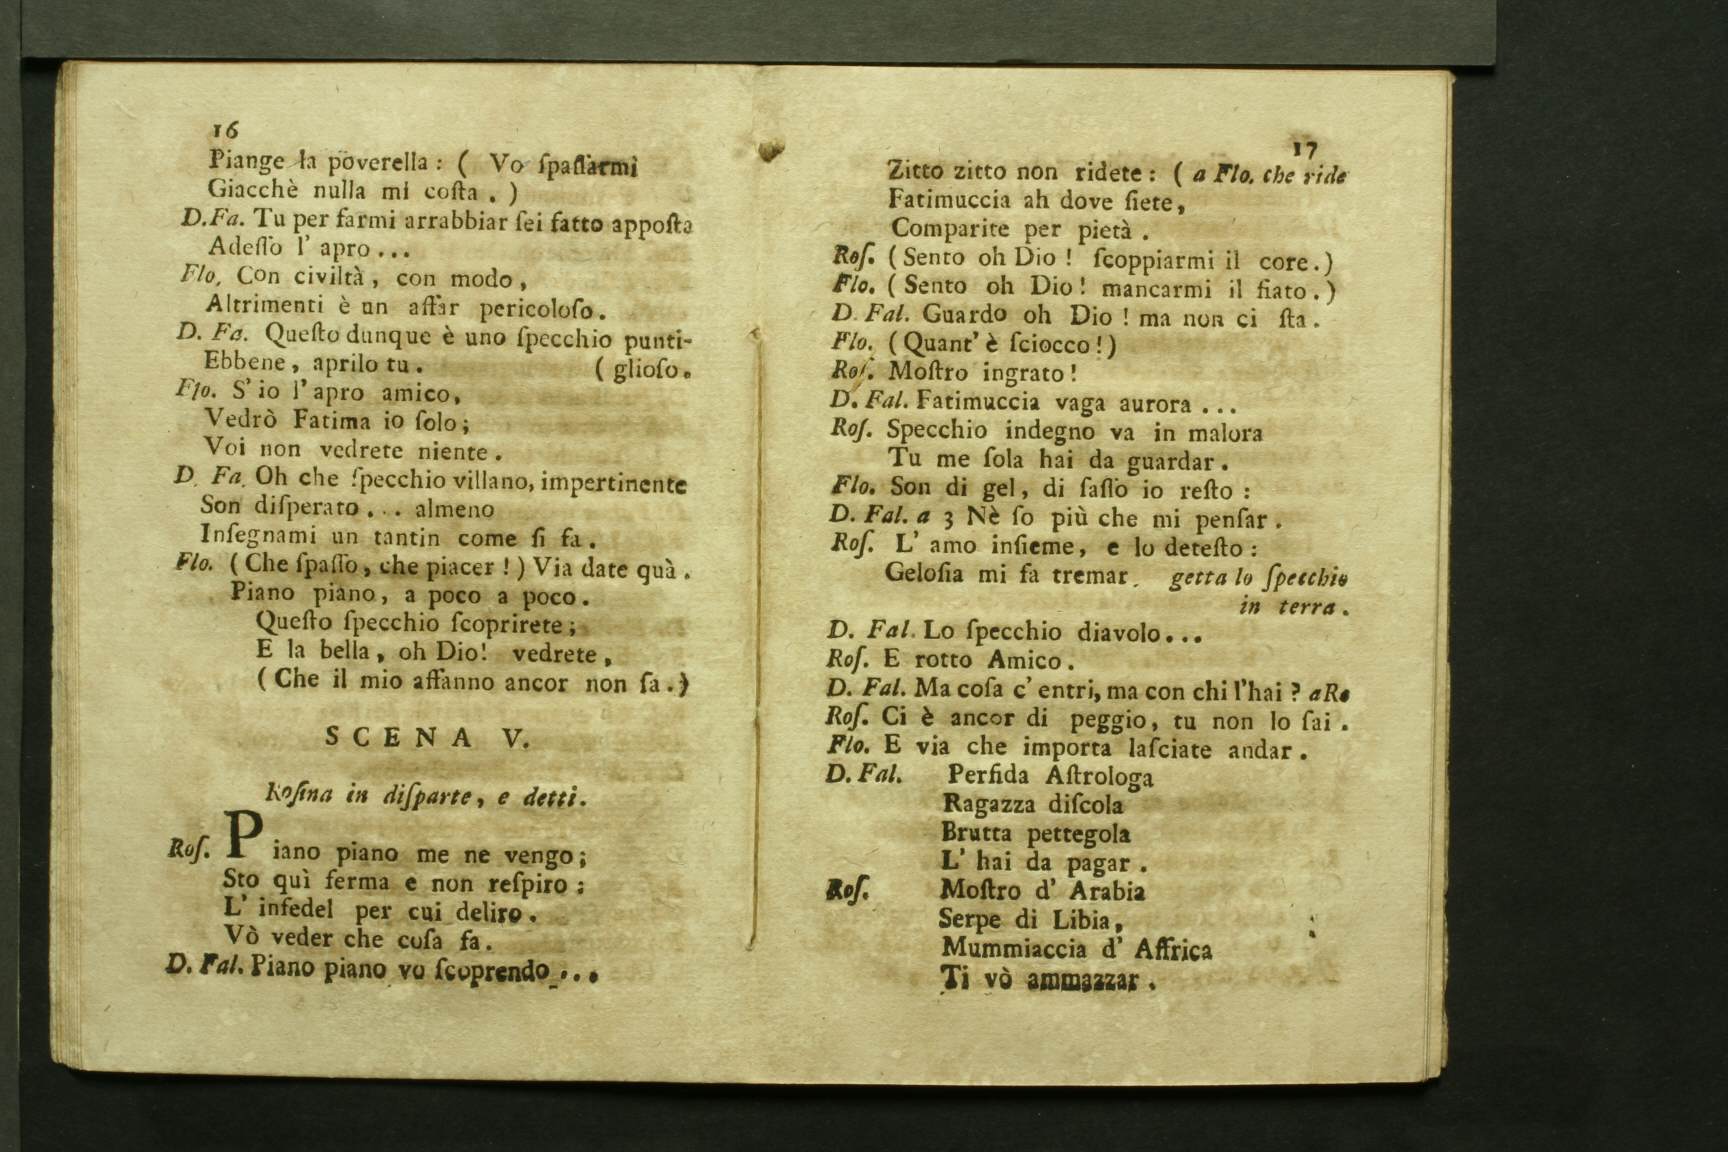 16
Piange la poverella : ( Vo ſpaſſarmi
Giacchè nulla mi coſta . )
D.Fa. Tu per farmi arrabbiar ſei fatto appoſta
Adeſſo l' apro ...
Flo. Con civiltà , con modo ,
Altrimenti è un affar pericoloſo .
D. Fa. Queſto dunque è uno ſpecchio punti-
Ebbene , aprilo tu . ( glioſo .
Flo. S' io l' apro amico ,
Vedrò Fatima io ſolo ;
Voi non vedrete niente .
D. Fa. Oh che ſpecchio villano, impertinente
Son diſperato ... almeno
Inſegnami un tantin come ſi fa .
Flo. ( Che ſpaſſo , che piacer ! ) Via date quà .
Piano piano , a poco a poco .
Queſto ſpecchio ſcoprirete ;
E la bella , oh Dio! vedrete ,
( Che il mio affanno ancor non ſa . )
SCENA V.
Roſina in diſparte , e detti .
Roſ. Piano piano me ne vengo ;
Sto quì ferma e non reſpiro :
L' infedel per cui deliro .
Vò veder che coſa fa .
D. Fal. Piano piano vo ſcoprendo ...
17
Zitto zitto non ridete : ( a Flo. che ride
Fatimuccia ah dove ſiete ,
Comparite per pietà .
Roſ. ( Sento oh Dio ! ſcoppiarmi il core . )
Flo. ( Sento oh Dio ! mancarmi il fiato . )
D. Fal. Guardo oh Dio ! ma non ci ſta .
Flo. ( Quant' è ſciocco ! )
Roſ. Moſtro ingrato !
D. Fal. Fatimuccia vaga aurora ...
Roſ. Specchio indegno va in malora
Tu me ſola hai da guardar .
Flo. Son di gel, di ſaſſo io reſto :
D. Fal. a 3 Nè ſo più che mi penſar .
Roſ. L' amo inſieme , e lo deteſto :
Geloſia mi fa tremar . getta lo ſpecchio
in terra .
D. Fal. Lo ſpecchio diavolo ...
Roſ. E rotto Amico .
D. Fal. Ma coſa c' entri, ma con chi l'hai ? a Ro
Roſ. Ci è ancor di peggio, tu non lo ſai .
Flo. E via che importa laſciate andar .
D. Fal. Perfida Aſtrologa
Ragazza diſcola
Brutta pettegola
L' hai da pagar .
Roſ. Moſtro d' Arabia
Serpe di Libia ,
Mummiaccia d' Affrica
Ti vò ammazzar .